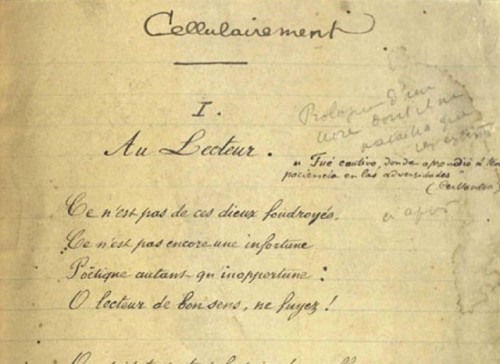 Cellulairement
I.
Au Lecteur.
Prologue d'un
livre dont il ne
" Fué cautivo, donde aprendió a
paciencia en las adversidades "
(Cervantes
Ce n'est pas de ces dieux foudroyés,
Ce n'est pas encore une infortune
Poëtique autant qu'inopportune :
O lecteur de bon sens, ne fuyez !